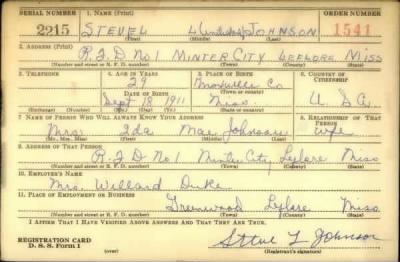 SERIAL NUMBER 1. NAME (Print) ORDER NUMBER
2215 STEVEL L JOHNSON 1541
(First) (Middle) (Last)
2. ADDRESS (Print)
R.F.D No1 MINTER CITY LEFLORE MISS
(Number and street or R. F. D. number) (Town) (County) (State)
3. TELEPHONE 4. AGE IN YEARS 5. PLACE OF BIRTH 6. COUNTRY OF CITIZENSHIP
29 Co
DATE OF BIRTH (Town or county)
Sept 18 1911 Miss U.S.A.
(Exchange) (Number) (Mo.) (Day) (Yr.) (State or country)
7. NAME OF PERSON WHO WILL ALWAYS KNOW YOUR ADDRESS 8. RELATIONSHIP OF THAT PERSON
Mrs. Ida Mae Johnson wife
(Mr., Mrs., Miss) (First) (Middle) (Last)
9. ADDRESS OF THAT PERSON
R.F.D No 1 Minter City, Leflore Miss
(Number and street or R. F. D. number) (Town) (County) (State)
10. EMPLOYER'S NAME
Mrs. Willard Duke
11. PLACE OF EMPLOYMENT OR BUSINESS
Greenwood Leflore Miss
(Number and street or R. F. D. number) (Town) (County) (State)
I AFFIRM THAT I HAVE VERIFIED ABOVE ANSWERS AND THAT THEY ARE TRUE.
REGISTRATION CARD
D. S. S. Form 1
Steve L Johnson
(Registrant's signature)
(over)